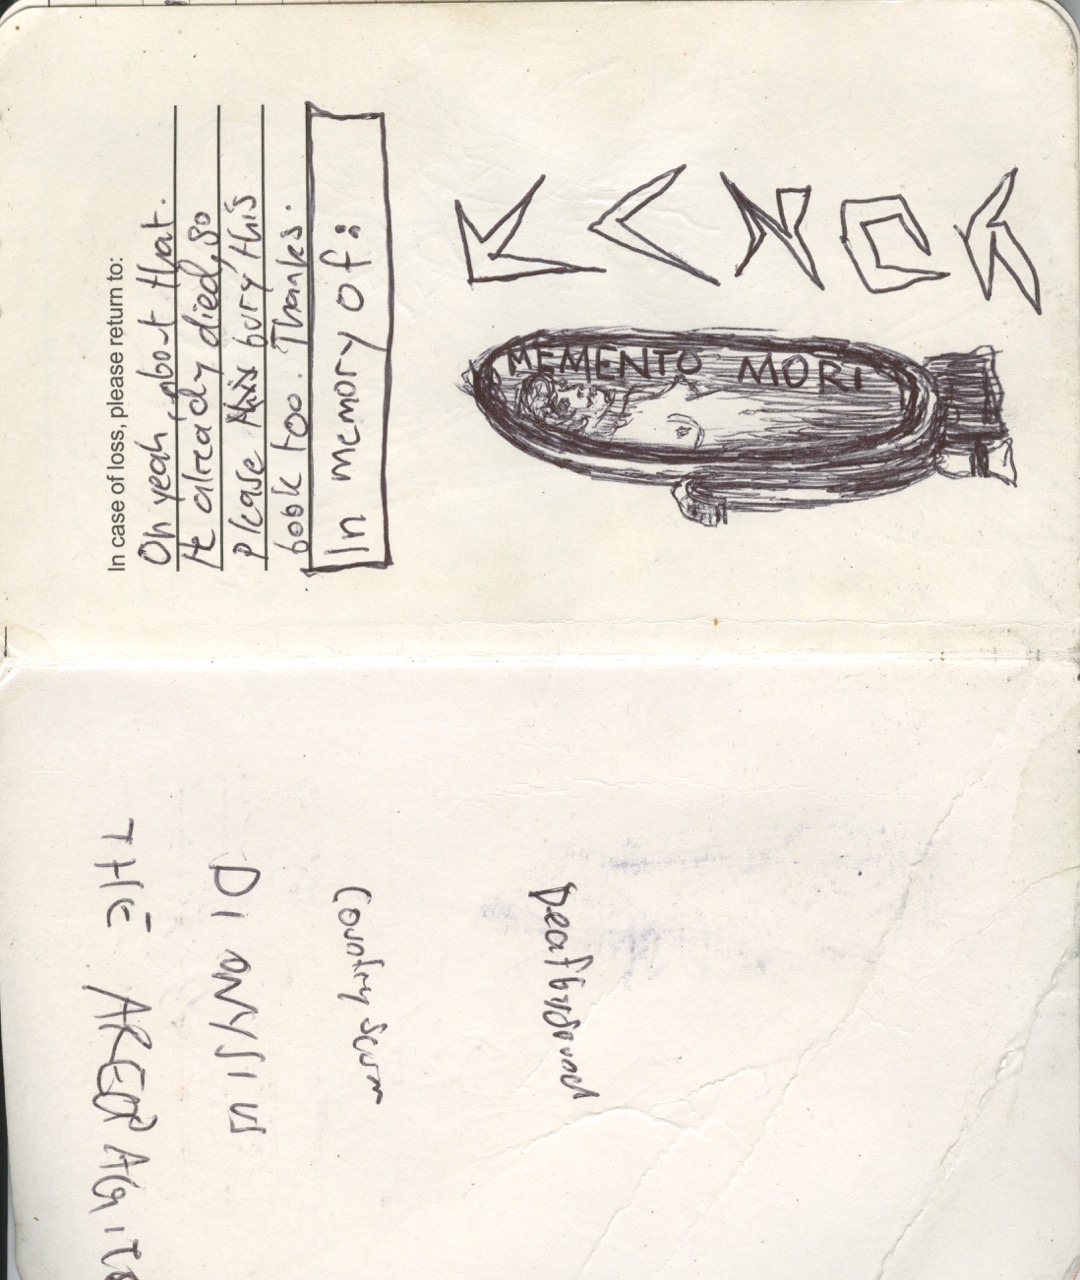 In case of loss, please return to:
Oh yeah, about that.
He already died, so
please bury this
book too. Thanks.
In memory of:
MEMENTO MORI
Country scum
DIONYSIUS
THE AREOPAGITE